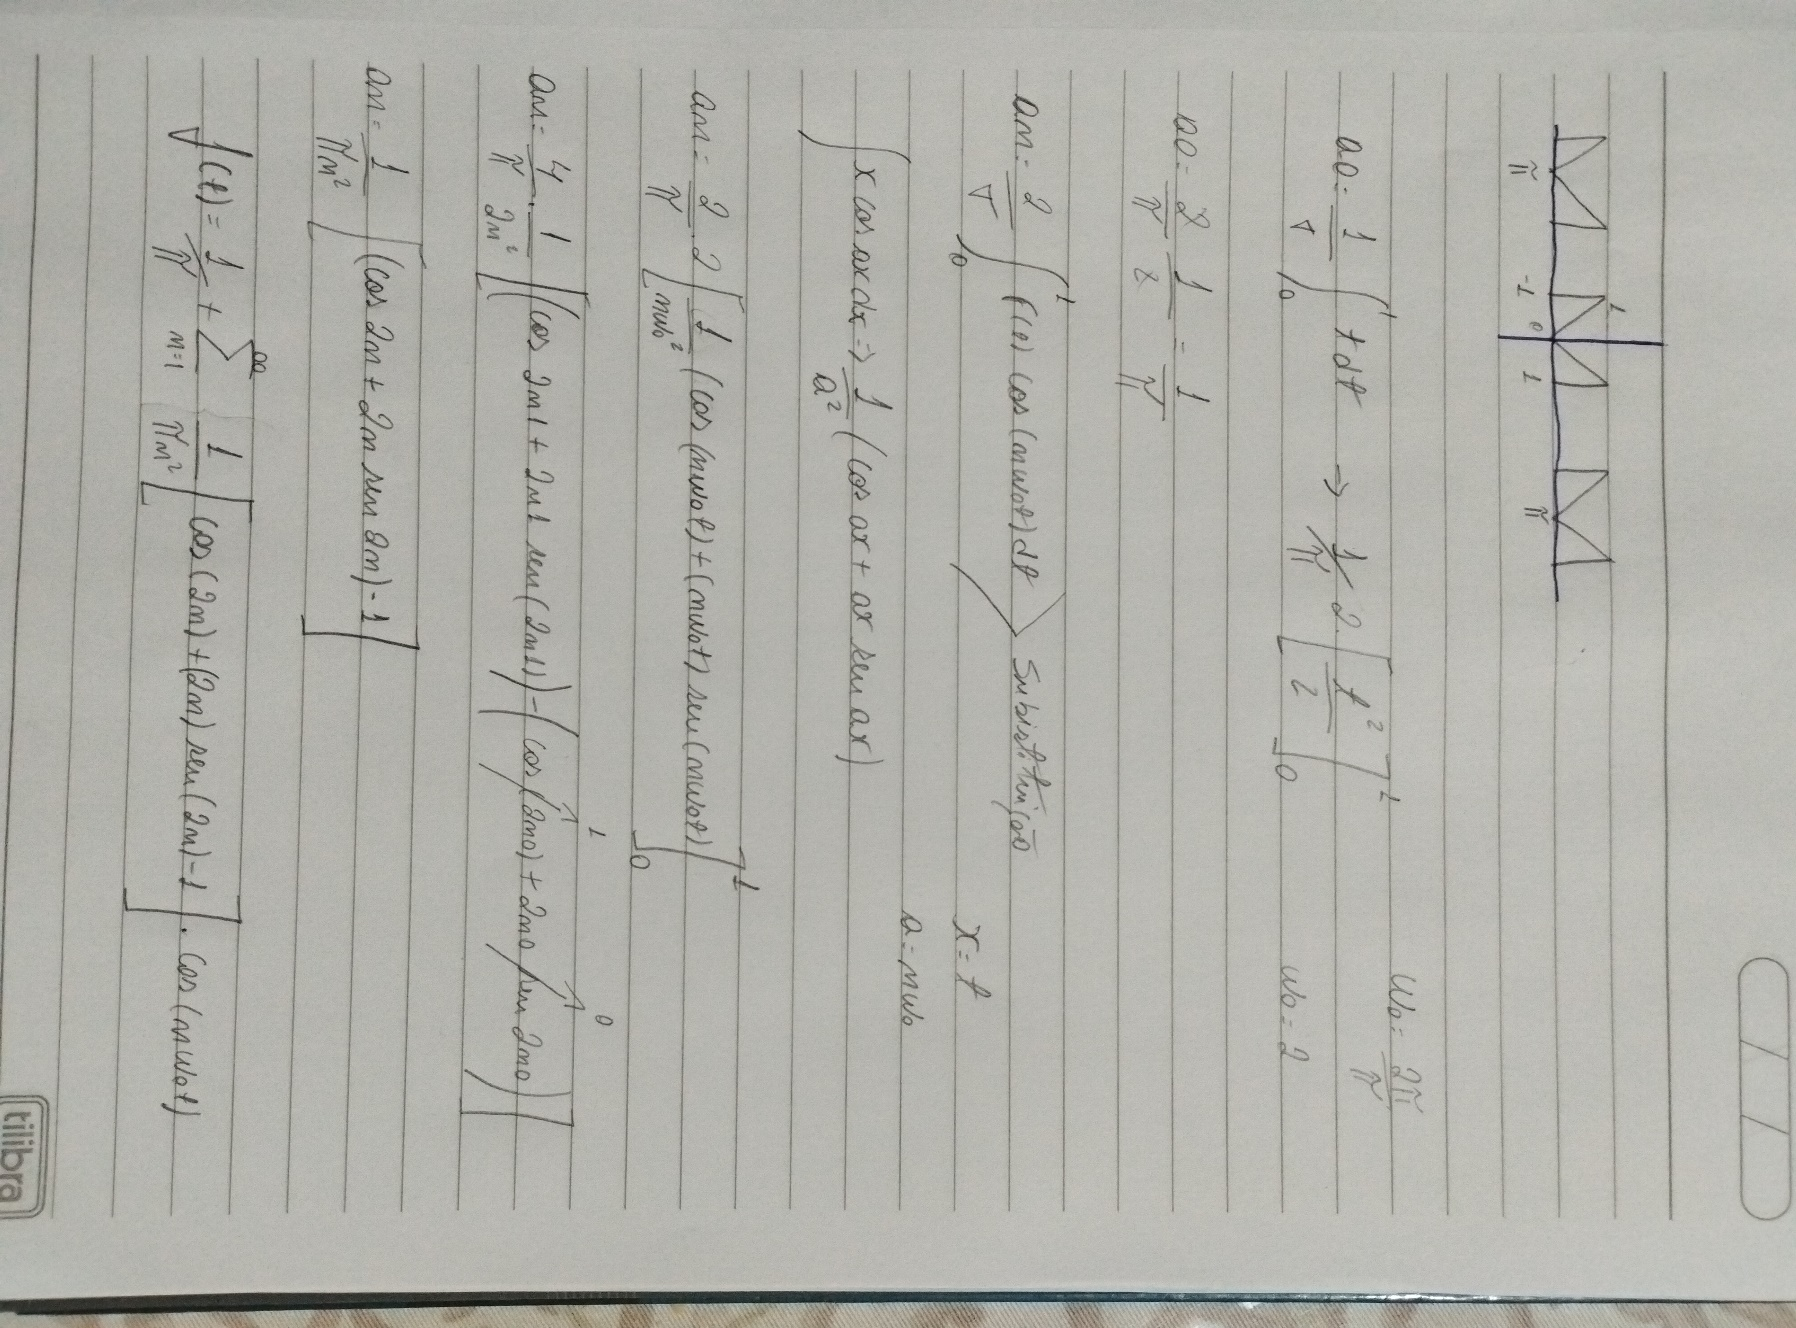 1
π -1 0 1 π
a0 = 1/T ∫₀¹ t dt → 1/π 2 . [t²/2]₀¹ w0 = 2π/π
w0 = 2
a0 = 2/π 1/2 = 1/π
an = 2/T ∫₀¹ f(t) cos (nw0t) dt Subistituição x = t
a = nw0
∫ x cos ax dx => 1/a² (cos ax + ax sen ax)
an = 2/π . 2 [1/nw0² (cos (nw0t) + (nw0t) sen (nw0t)]₀¹
an = 4/π . 1/2n² [(cos 2n1 + 2n1 sen (2n1)) - (cos (2n0) + 2n0 sen 2n0)] 1 0
an = 1/πn² [(cos 2n + 2n sen 2n) - 1]
f(t) = 1/π + ∑ₙ₌₁^∞ 1/πn² [cos (2n) + (2n) sen (2n) - 1] . cos (nw0t)
tilibra